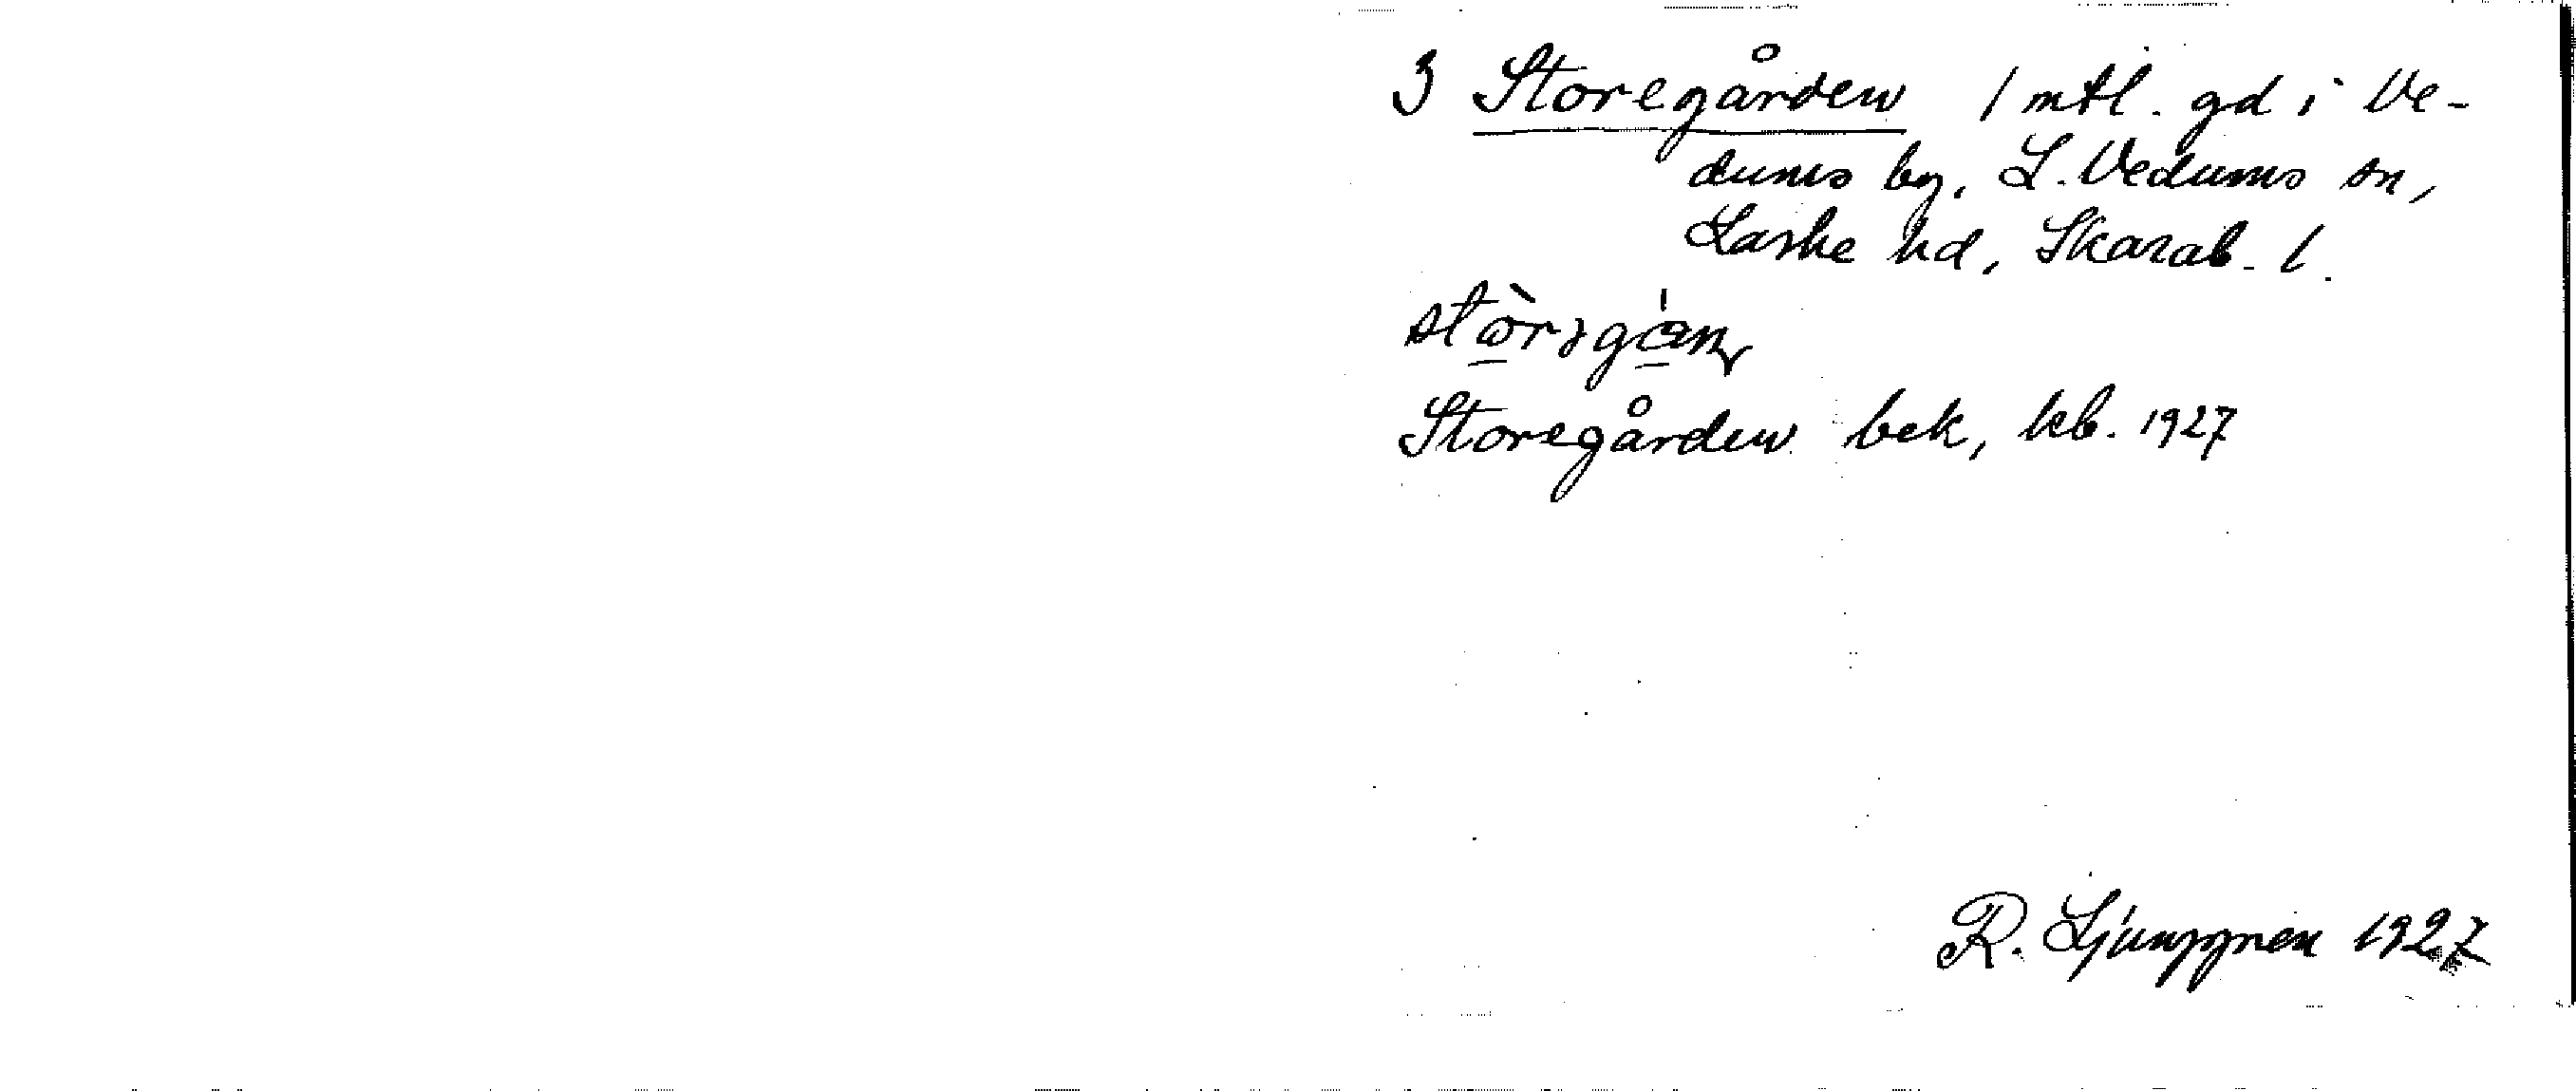 3 Storegården 1 mtl. gd i Ve-
dums by, L. Vedums sn,
Laske hd, Skarab. l.
Storegården bek, kb. 1927
R. Ljunggren 1927